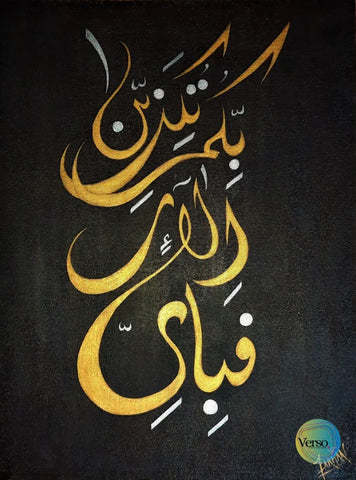 فَبِأَيِّ
آلَاءِ
رَبِّكُمَا
تُكَذِّبَانِ
Verso